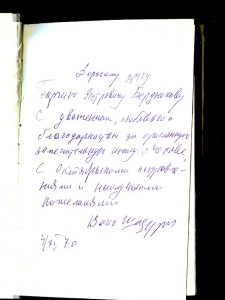 Дорогому другу
Георгию Петровичу Бердникову
С уважением, любовью и
благодарностью за
замечательную книгу о Чехове,
С Октябрьскими поздравле-
ниями и наилучшими
пожеланиями
Ваш
4/XI 70